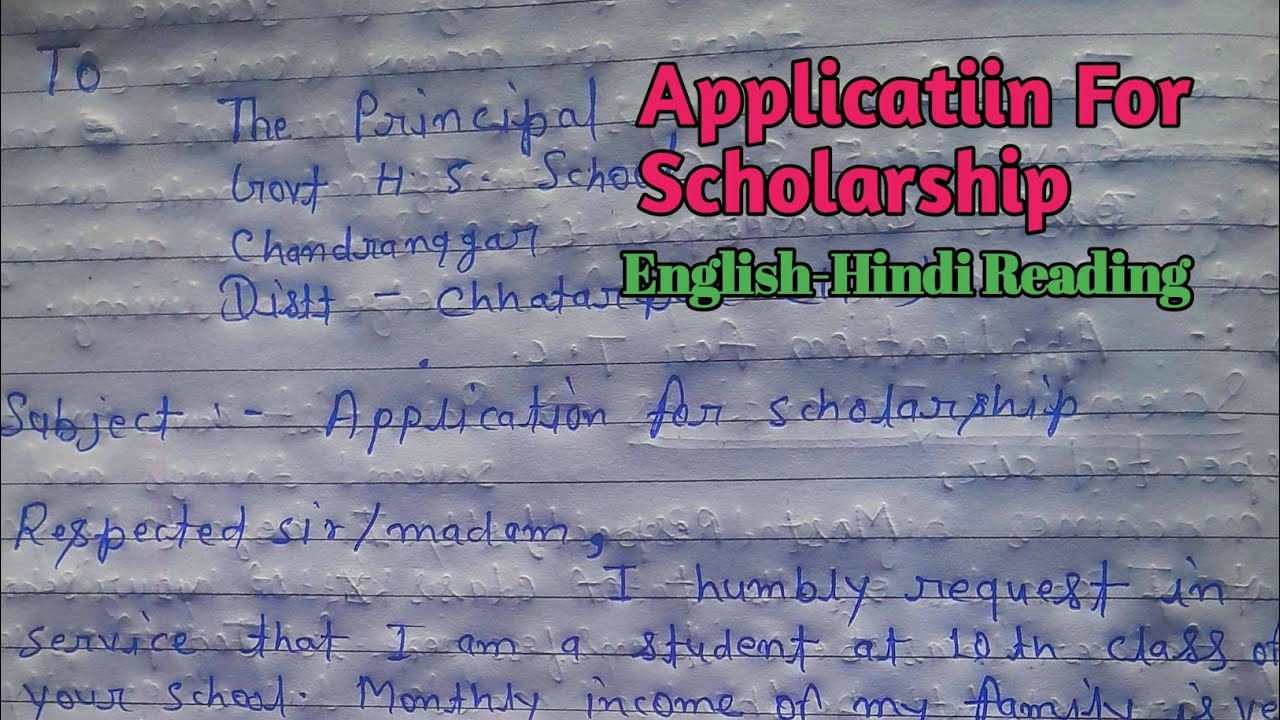 To
The Principal
Govt H. S. School
Chandranggar
Distt - Chhatarp
Applicatiin For
Scholarship
English-Hindi Reading
Subject :- Application for scholarship
Respected sir/madam,
I humbly request in
service that I am a student at 10th class of
your school. Monthly income of my family is ve